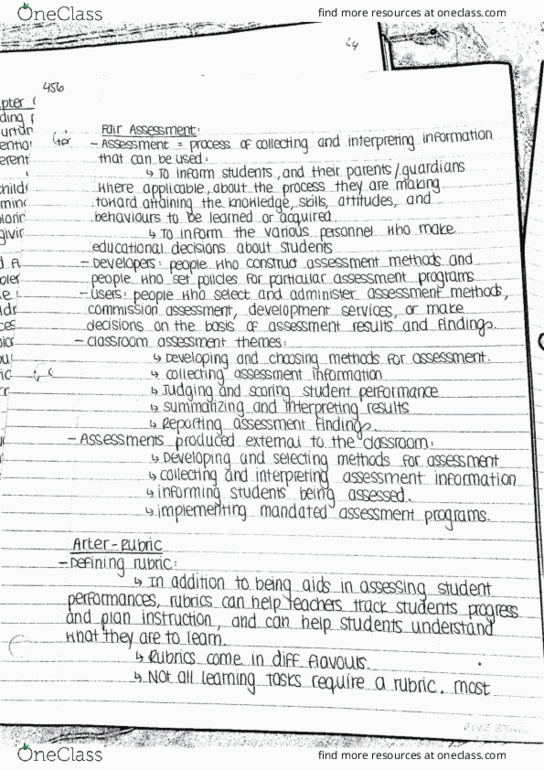 OneClass
find more resources at oneclass.com
456
Fair Assessment:
- Assessment = process of collecting and interpreting information
that can be used:
↳ To inform students, and their parents/guardians
where applicable, about the process they are making
toward attaining the knowledge, skills, attitudes, and
behaviours to be learned or acquired
↳ To inform the various personnel who make
educational decisions about students
- Developers: people who construct assessment methods and
people who set policies for particular assessment programs
- Users: people who select and administer assessment methods,
commission assessment, development services, or make
decisions on the basis of assessment results and findings.
- Classroom assessment themes:
↳ Developing and choosing methods for assessment.
↳ collecting assessment information
↳ Judging and scoring student performance
↳ summarizing and interpreting results
↳ Reporting assessment findings.
- Assessments produced external to the classroom:
↳ Developing and selecting methods for assessment
↳ collecting and interpreting assessment information
↳ informing students being assessed.
↳ implementing mandated assessment programs.
Arter-Rubric
- Defining rubric:
↳ In addition to being aids in assessing student
performances, rubrics can help teachers track students progress
and plan instruction, and can help students understand
what they are to learn.
↳ Rubrics come in diff flavours.
↳ Not all learning tasks require a rubric. most
OneClass
find more resources at oneclass.com